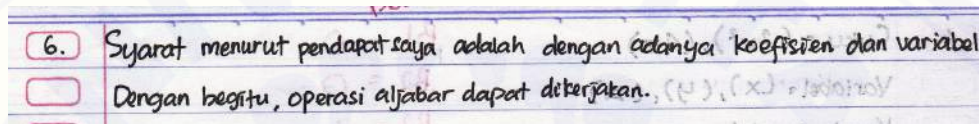 6. Syarat menurut pendapat saya adalah dengan adanya koefisien dan variabel
Dengan begitu, operasi aljabar dapat dikerjakan.